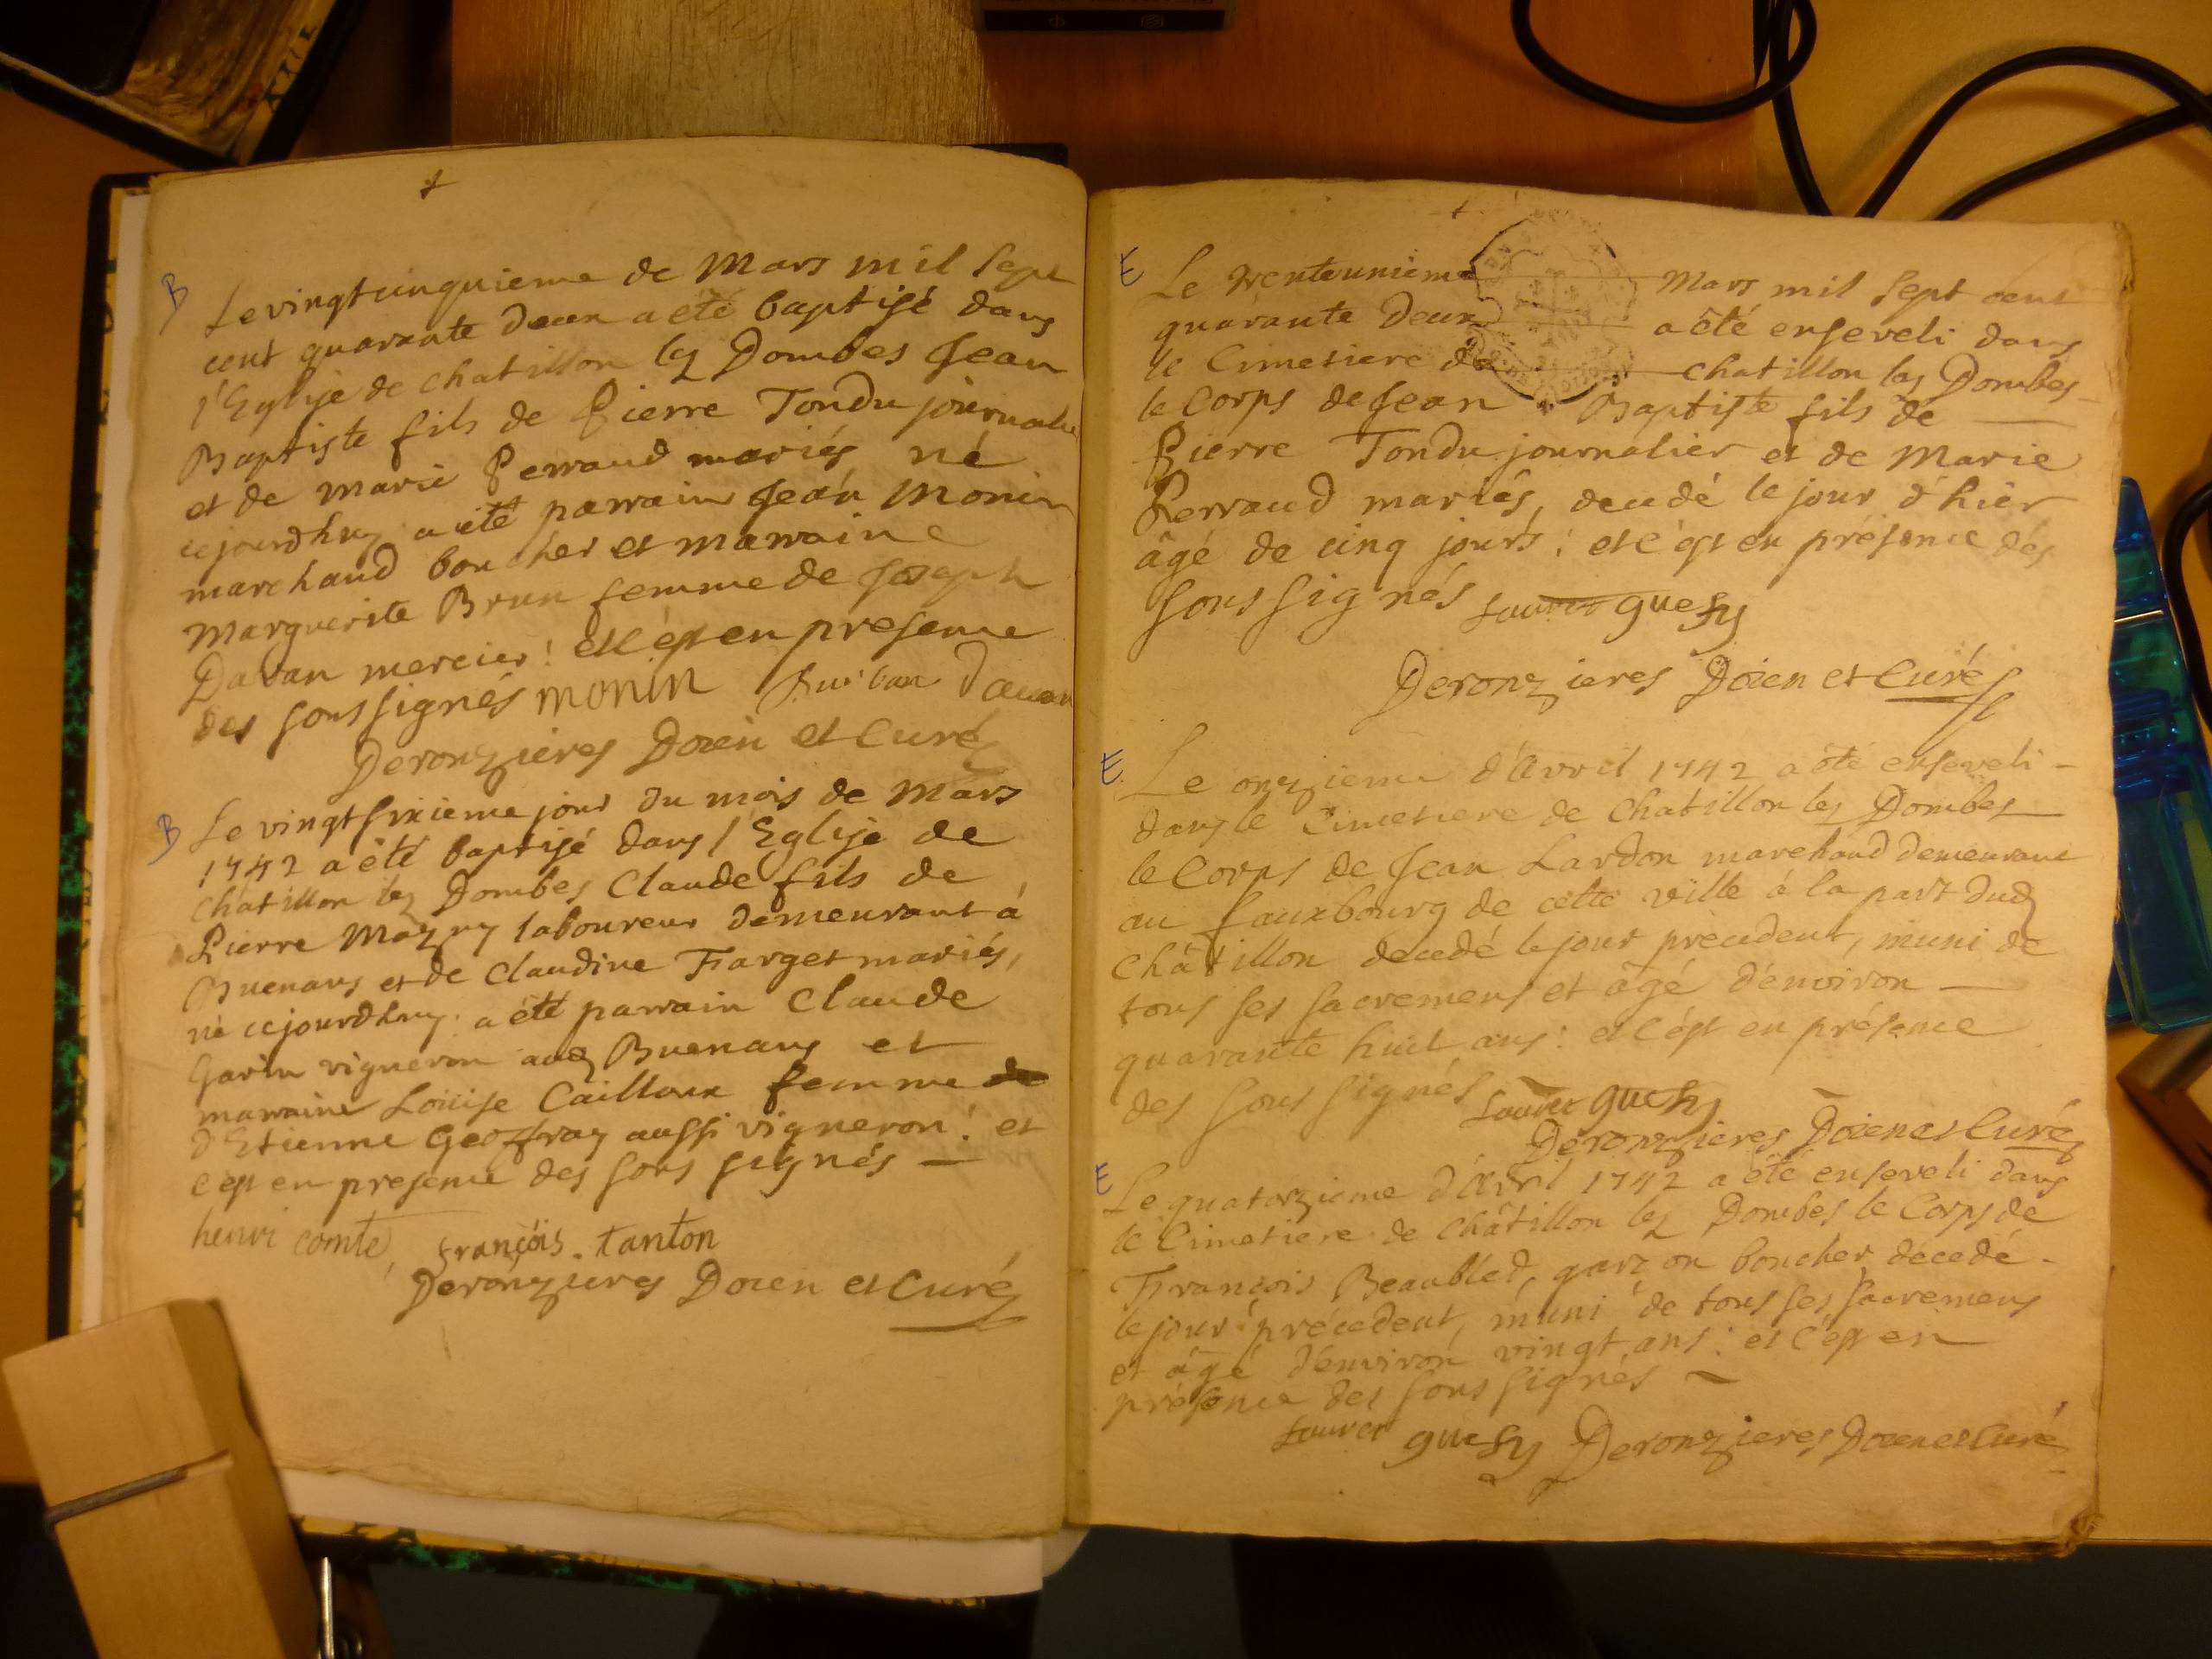 B
Le vingtcinquieme de Mars mil sept
cent quarante deux a eté baptisé dans
l'Eglise de chatillon les Dombes Jean
Baptiste fils de Pierre Tondu journalier
et de marie Perraud mariés né
cejourdhuy a eté parrain Jean Monin
marchand boucher et marraine
Marguerite Brun femme de Joseph
Davan mercier: et c'est en presence
des sous signés monin davan
Deronzieres Doien et Curé
B
Le vingt sixieme jour du mois de Mars
1742 a été baptisé dans l'Eglise de
chatillon les Dombes Claude fils de
Pierre Mazuy laboureur demeurant à
Buenans et de Claudine Farget mariés,
né cejourdhuy. a été parrain Claude
Garin vigneron audᵗ Buenans et
marraine Louise Cailloux femme
d'Etienne Geoffray aussi vigneron: et
c'est en presence des sous signés —
henri comte, françois. tanton
Deronzieres Doien et Curé
E
Le trenteunieme Mars mil sept cent
quarante deux a été enseveli dans
le Cimetiere de chatillon les Dombes
le Corps de Jean Baptiste fils de
Pierre Tondu journalier et de Marie
Perraud mariés, decedé le jour d'hier
âgé de cinq jours: et c'est en présence des
sous signés
Deronzieres Doien et Curé
E
Le onzieme d'Avril 1742 a été enseveli -
dans le Cimetiere de Chatillon les Dombes
le Corps de Jean Lardon marchand demeurant
au fauxbourg de cette ville à la part dudᵗ
Châtillon decedé le jour precedent, muni de
tous ses sacremens et âgé d'environ —
quarante huit ans: et c'est en présence
des sous signés
Deronzieres Doien et Curé
E
Le quatorzieme d'Avril 1742 a été enseveli dans
le Cimetiere de Châtillon les Dombes le Corps de
François Beaubled, garzon boucher, décedé -
le jour précedent, muni de tous ses sacremens
et âgé d'environ vingt ans: et c'est en
présence des sous signés —
Deronzieres Doien et Curé